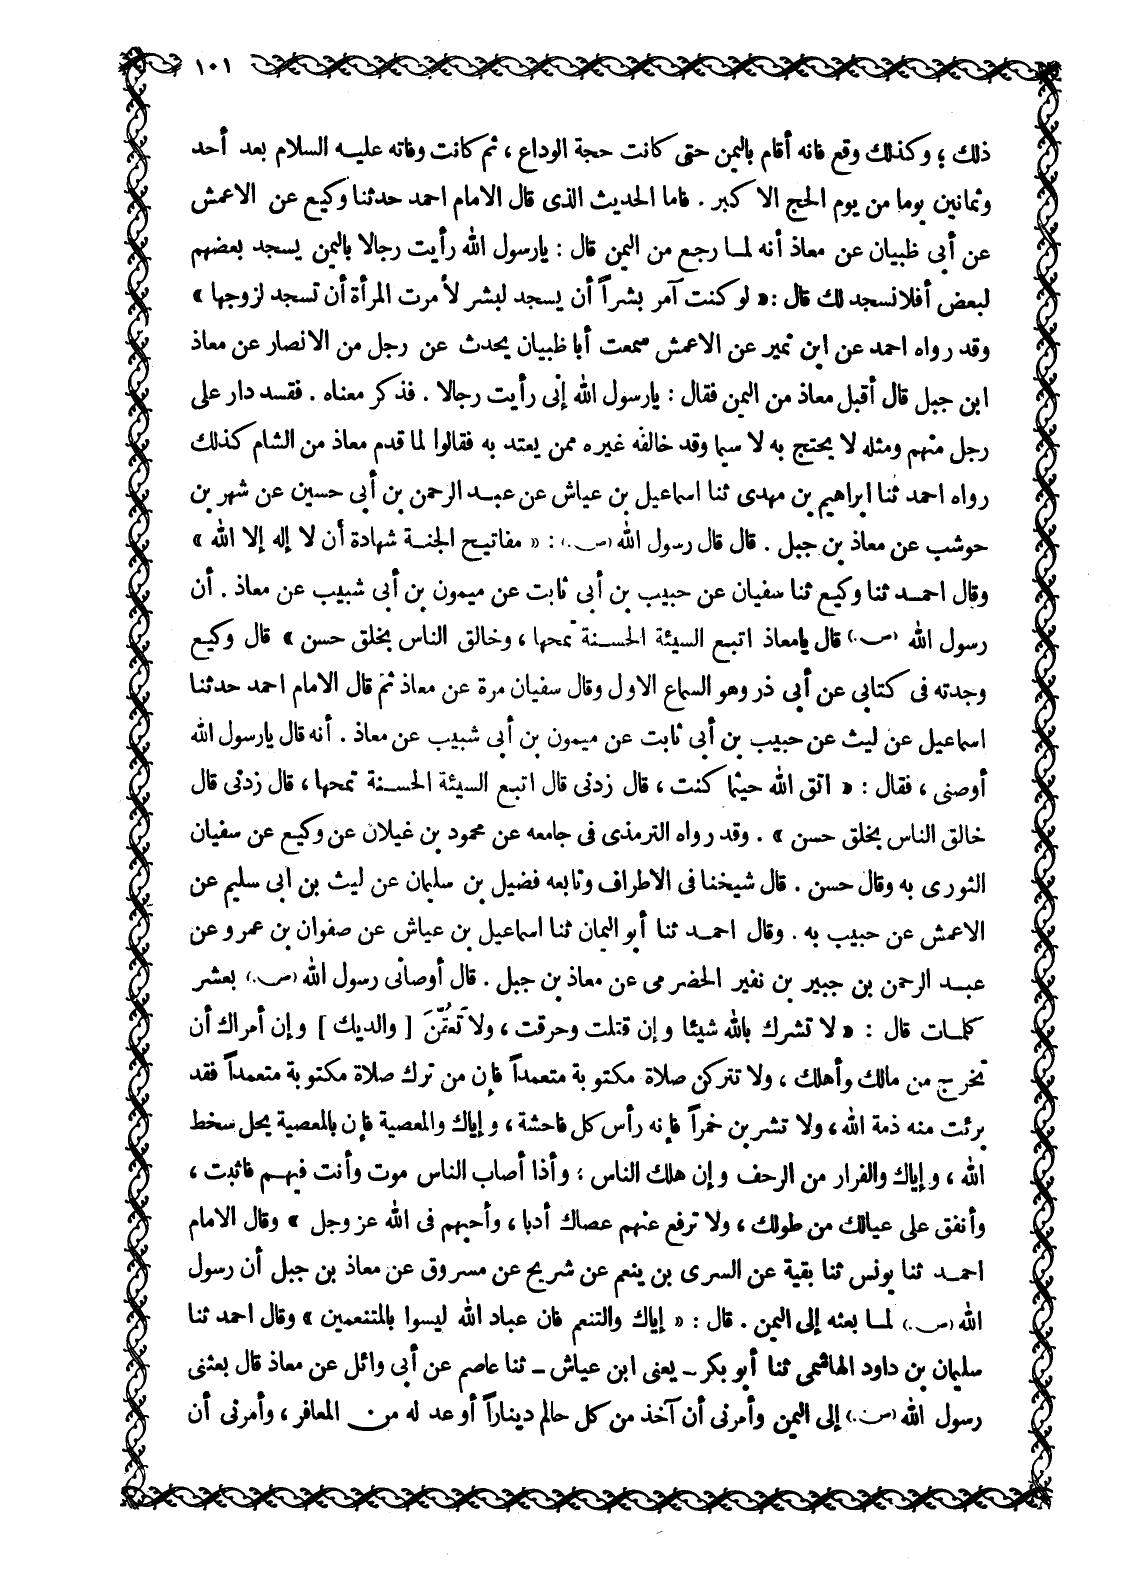 ١٠١
ذلك ؛ وكذلك وقع فانه أقام باليمن حتى كانت حجة الوداع ، ثم كانت وفاته عليه السلام بعد أحد
وثمانين يوما من يوم الحج الاكبر . فاما الحديث الذى قال الامام احمد حدثنا وكيع عن الاعمش
عن أبى ظبيان عن معاذ أنه لما رجع من اليمن قال : يارسول الله رأيت رجالا باليمن يسجد بعضهم
لبعض أفلانسجد لك قال : « لو كنت آمر بشراً أن يسجد لبشر لأمرت المرأة أن تسجد لزوجها »
وقد رواه احمد عن ابن نمير عن الاعمش سمعت أبا ظبيان يحدث عن رجل من الانصار عن معاذ
ابن جبل قال أقبل معاذ من اليمن فقال : يارسول الله إنى رأيت رجالا . فذكر معناه . فقسد دار على
رجل منهم ومثله لا يحتج به لا سيما وقد خالفه غيره ممن يعتد به فقالوا لما قدم معاذ من الشام كذلك
رواه احمد ثنا ابراهيم بن مهدى ثنا اسماعيل بن عياش عن عبد الرحمن بن أبى حسين عن شهر بن
حوشب عن معاذ بن جبل . قال قال رسول الله (ص.) : « مفاتيح الجنة شهادة أن لا إله إلا الله »
وقال احمد ثنا وكيع ثنا سفيان عن حبيب بن أبى ثابت عن ميمون بن أبى شبيب عن معاذ . أن
رسول الله (ص.) قال يامعاذ اتبع السيئة الحسنة تمحها ، وخالق الناس بخلق حسن » قال وكيع
وجدته فى كتابى عن أبى ذر وهو السماع الاول وقال سفيان مرة عن معاذ ثم قال الامام احمد حدثنا
اسماعيل عن ليث عن حبيب بن أبى ثابت عن ميمون بن أبى شبيب عن معاذ . أنه قال يارسول الله
أوصنى ، فقال : « اتق الله حيثما كنت ، قال زدنى قال اتبع السيئة الحسنة تمحها ، قال زدنى قال
خالق الناس بخلق حسن » . وقد رواه الترمذى فى جامعه عن محمود بن غيلان عن وكيع عن سفيان
الثورى به وقال حسن . قال شيخنا فى الاطراف وتابعه فضيل بن سليمان عن ليث بن ابى سليم عن
الاعمش عن حبيب به . وقال احمد ثنا أبو اليمان ثنا اسماعيل بن عياش عن صفوان بن عمرو عن
عبد الرحمن بن جبير بن نفير الحضرمى عن معاذ بن جبل . قال أوصانى رسول الله (ص.) بعشر
كلمات قال : « لا تشرك بالله شيئا و إن قتلت وحرقت ، ولا تَعُقّنّ [ والديك ] و إن أمراك أن
تخرج من مالك وأهلك ، ولا تتركن صلاة مكتوبة متعمداً فإن من ترك صلاة مكتوبة متعمداً فقد
برئت منه ذمة الله ، ولا تشربن خمراً فإنه رأس كل فاحشة ، و إياك والمعصية فإن بالمعصية يحل سخط
الله ، و إياك والفرار من الزحف و إن هلك الناس ؛ وأذا أصاب الناس موت وأنت فيهم فاثبت ،
وأنفق على عيالك من طولك ، ولا ترفع عنهم عصاك أدبا ، وأحبهم فى الله عز وجل » وقال الامام
احمد ثنا يونس ثنا بقية عن السرى بن ينعم عن شريح عن مسروق عن معاذ بن جبل أن رسول
الله (ص.) لما بعثه إلى اليمن . قال : « إياك والتنعم فان عباد الله ليسوا بالمتنعمين » وقال احمد ثنا
سليمان بن داود الهاشمى ثنا أبو بكر ـ يعنى ابن عياش ـ ثنا عاصم عن أبى وائل عن معاذ قال بعثنى
رسول الله (ص.) إلى اليمن وأمرنى أن آخذ من كل حالم ديناراً أو عدله من المعافر ، وأمرنى أن